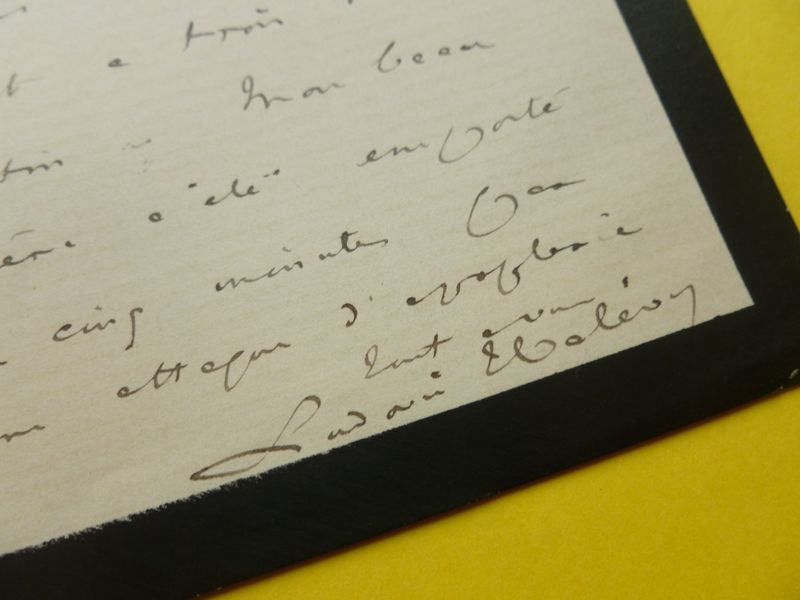 a trois
Mon beau
a été emporté
cinq minutes par
attaque d'apoplexie
Tout à vous
Ludovic Halévy